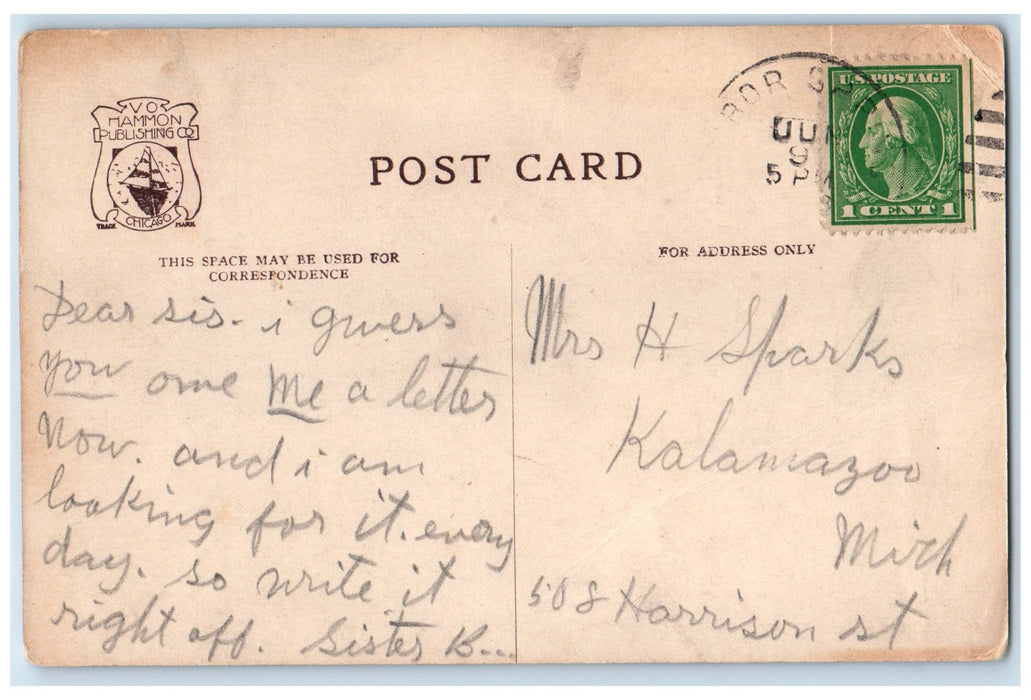 V O
HAMMON
PUBLISHING CO
CHICAGO
TRADE MARK
POST CARD
JUN
9
5 PM
U.S. POSTAGE
1 CENT 1
THIS SPACE MAY BE USED FOR
CORRESPONDENCE
FOR ADDRESS ONLY
Dear sis. i guess
you owe me a letter
now. and i am
looking for it. every
day. so write it
right off. Sister B...
Mrs H Sparks
Kalamazoo
Mich
508 Harrison st